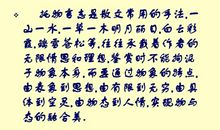 托物言志是散文常用的手法,一
山一水,一草一木明月丽日,白云彩
霞,瑞雪苍松等,往往承载着作者的
无限情思和理想,鉴赏时不能拘泥
于物象本身,而要通过物象的特点,
由表象到思想,由有限到无穷,由具
体到空灵,由物态到人情,实现物与
态的融合美。